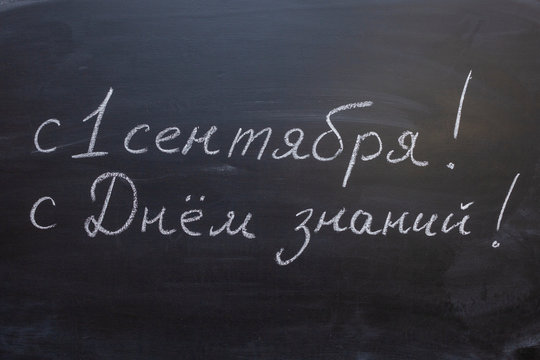 с 1 сентября!
с Днём знаний!